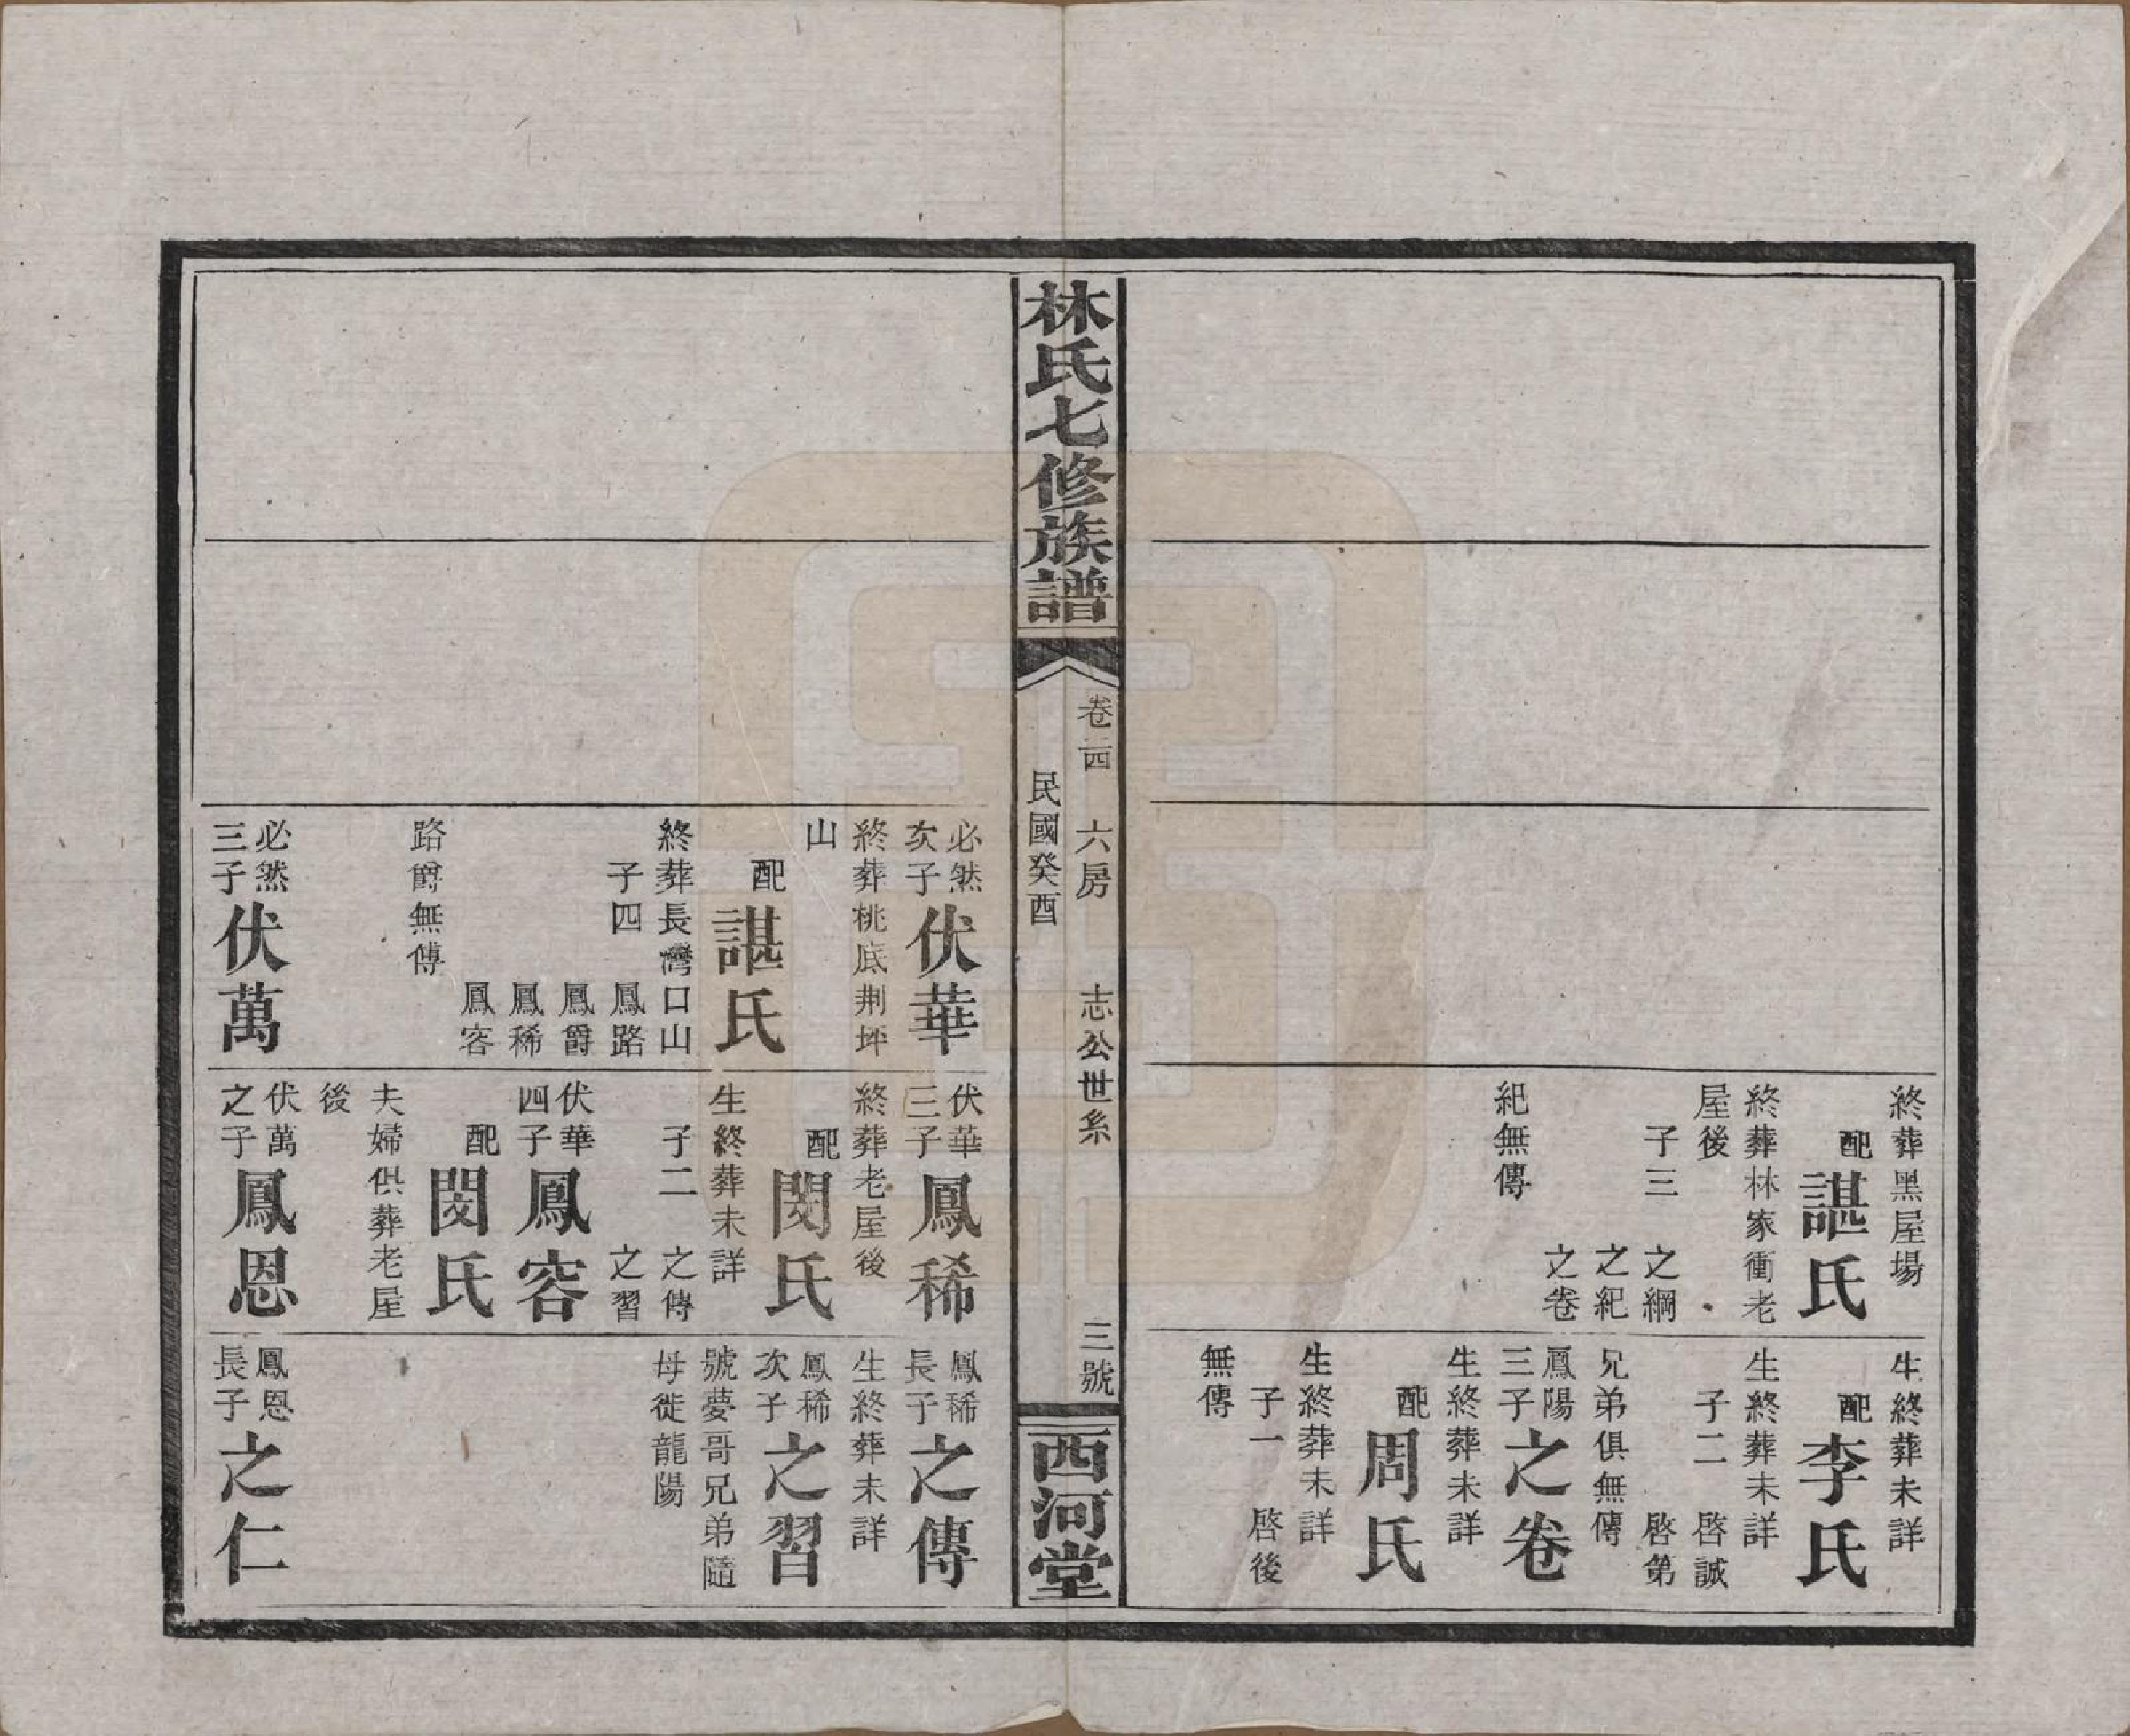 終葬黑屋場
配
諶氏
終葬林家衝老
屋後
子三
之綱
之紀
之卷
紀無傳
生終葬未詳
配
李氏
生終葬未詳
子二
啓誠
啓第
兄弟俱無傳
鳳陽
三子
之卷
生終葬未詳
配
周氏
生終葬未詳
子一
啓後
無傳
林氏七修族譜
卷二四
六房
志公世系
三號
民國癸酉
西河堂
必然
次子
伏華
終葬桃底荆坪
山
配
諶氏
終葬長灣口山
子四
鳳路
鳳爵
鳳稀
鳳容
路爵無傳
必然
三子
伏萬
伏華
三子
鳳稀
終葬老屋後
配
閔氏
生終葬未詳
子二
之傳
之習
伏華
四子
鳳容
配
閔氏
夫婦俱葬老屋
後
伏萬
之子
鳳恩
鳳稀
長子
之傳
生終葬未詳
鳳稀
次子
之習
號夢哥兄弟隨
母徙龍陽
鳳恩
長子
之仁